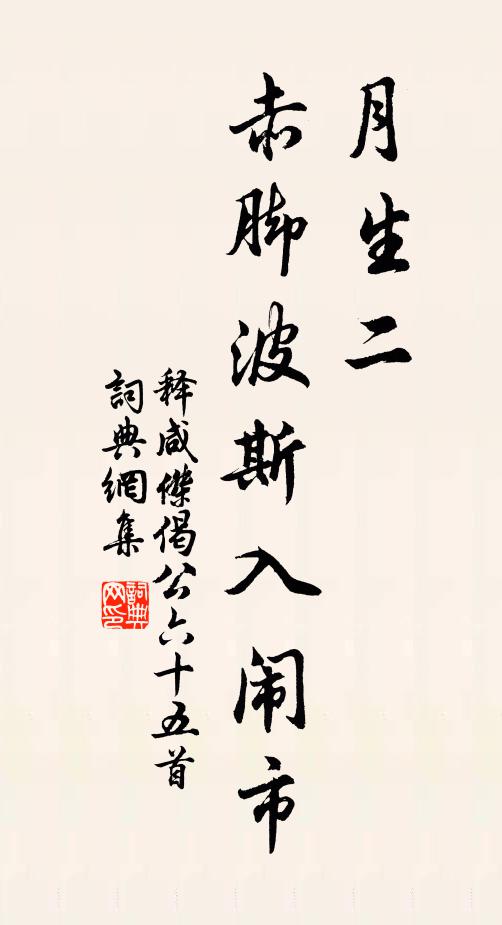 月生二
赤脚波斯入闹市
释咸傑偈公六十五首
詞典網集
詞典网印